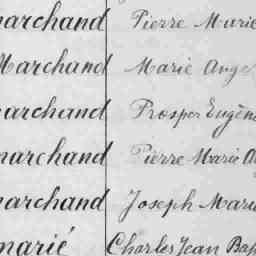 marchand Pierre Marie
Marchand Marie Ange
marchand Prosper Eugène
marchand Pierre Marie
marchand Joseph Marie
marié Charles Jean Bap